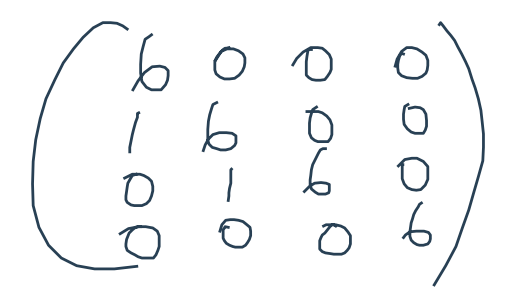 6 0 0 0
1 6 0 0
0 1 6 0
0 0 0 6